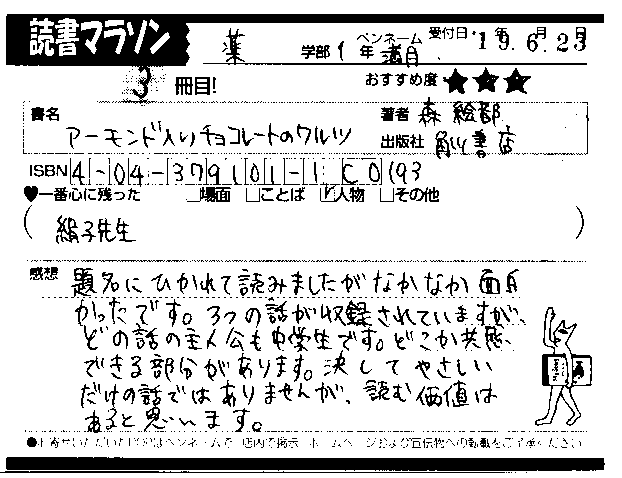 読書マラソン 薬 学部 1 年 ペンネーム 満月 受付日・'19.6.23
3 冊目! おすすめ度 ★★★
書名 アーモンド入りチョコレートのワルツ 著者 森 絵都
出版社 角川書店
ISBN 4-04-379101-1 C0193
♥一番心に残った □場面 □ことば ☑人物 □その他
( 絹子先生 )
感想 題名にひかれて読みましたがなかなか面白
かったです。3つの話が収録されていますが、
どの話の主人公も中学生です。どこか共感
できる部分があります。決してやさしい
だけの話ではありませんが、読む価値は
あると思います。
●お寄せいただいたPOPはペンネームで、店内で掲示・ホームページおよび宣伝物への転載をご了承ください